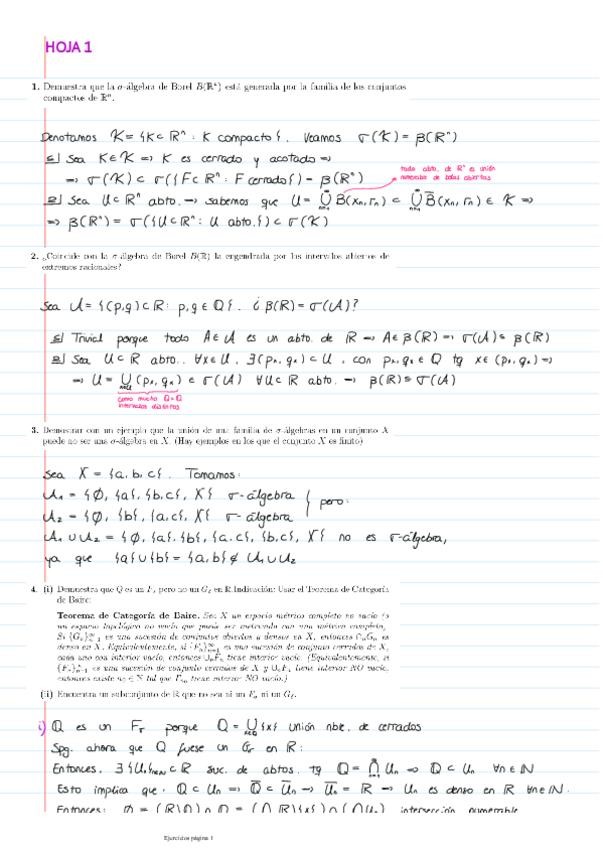 HOJA 1
1. Demuestra que la σ-álgebra de Borel B(ℝⁿ) está generada por la familia de los conjuntos
compactos de ℝⁿ.
Denotamos K = {K⊂ℝⁿ : K compacto}. Veamos σ(K) = β(ℝⁿ)
⊆] Sea K∈K ⇒ K es cerrado y acotado ⇒
⇒ σ(K) ⊂ σ({F⊂ℝⁿ : F cerrado}) = β(ℝⁿ)
todo abto. de ℝⁿ es unión
numerable de bolas abiertas
⊇] Sea U⊂ℝⁿ abto. → sabemos que U = ⋃ B(xₙ, rₙ) ⊂ ⋃ B̄(xₙ, rₙ) ∈ K ⇒
⇒ β(ℝⁿ) = σ({U⊂ℝⁿ : U abto.}) ⊂ σ(K)
2. ¿Coincide con la σ-álgebra de Borel B(ℝ) la engendrada por los intervalos abiertos de
extremos racionales?
Sea U = {(p,q)⊂ℝ : p,q∈ℚ}. ¿ β(ℝ) = σ(U)?
⊆] Trivial porque todo A∈U es un abto. de ℝ → A∈β(ℝ) → σ(U)⊆β(ℝ)
⊇] Sea U⊂ℝ abto.. ∀x∈U, ∃(pₓ, qₓ)⊂U, con pₓ,qₓ∈ℚ tq x∈(pₓ, qₓ) ⇒
⇒ U = ⋃ (pₓ, qₓ) ∈ σ(U) ∀U⊂ℝ abto. → β(ℝ)⊆σ(U)
como mucho ℚ×ℚ
intervalos distintos
3. Demostrar con un ejemplo que la unión de una familia de σ-álgebras en un conjunto X
puede no ser una σ-álgebra en X. (Hay ejemplos en los que el conjunto X es finito)
Sea X = {a, b, c}. Tomamos:
U₁ = {∅, {a}, {b,c}, X} σ-álgebra
pero:
U₂ = {∅, {b}, {a,c}, X} σ-álgebra
U₁∪U₂ = {∅, {a}, {b}, {a,c}, {b,c}, X} no es σ-álgebra,
ya que {a}∪{b} = {a,b} ∉ U₁∪U₂
4. (i) Demuestra que ℚ es un Fσ pero no un Gδ en ℝ.Indicación: Usar el Teorema de Categoría
de Baire:
Teorema de Categoría de Baire. Sea X un espacio métrico completo no vacío (o
un espacio topológico no vacío que pueda ser metrizado con una métrica completa).
Si {Gₙ}ₙ₌₁^∞ es una sucesión de conjuntos abiertos y densos en X, entonces ∩ₙGₙ es
denso en X. Equivalentemente, si {Fₙ}ₙ₌₁^∞ es una sucesión de conjuntos cerrados de X,
cada uno con interior vacío, entonces ∪ₙFₙ tiene interior vacío. (Equivalentemente, si
{Fₙ}ₙ₌₁^∞ es una sucesión de conjunto cerrados de X y ∪ₙFₙ tiene interior NO vacío,
entonces existe n₀ ∈ ℕ tal que Fₙ₀ tiene interior NO vacío.)
(ii) Encuentra un subconjunto de ℝ que no sea ni un Fσ ni un Gδ.
i) ℚ es un Fσ porque ℚ = ⋃ {x} unión nble. de cerrados
Spg. ahora que ℚ fuese un Gδ en ℝ:
Entonces, ∃{Uₙ}ₙ∈ℕ⊂ℝ suc. de abtos. tq ℚ = ⋂ Uₙ ⇒ ℚ⊂Uₙ ∀n∈ℕ
Esto implica que: ℚ⊂Uₙ ⇒ ℚ̄⊂Ūₙ → Ūₙ = ℝ → Uₙ es denso en ℝ ∀n∈ℕ.
Entonces: ∅ = (ℝ\ℚ)∩ℚ = (⋂ ℝ\{x})∩(⋂Uₙ) intersección numerable
Ejercicios página 1